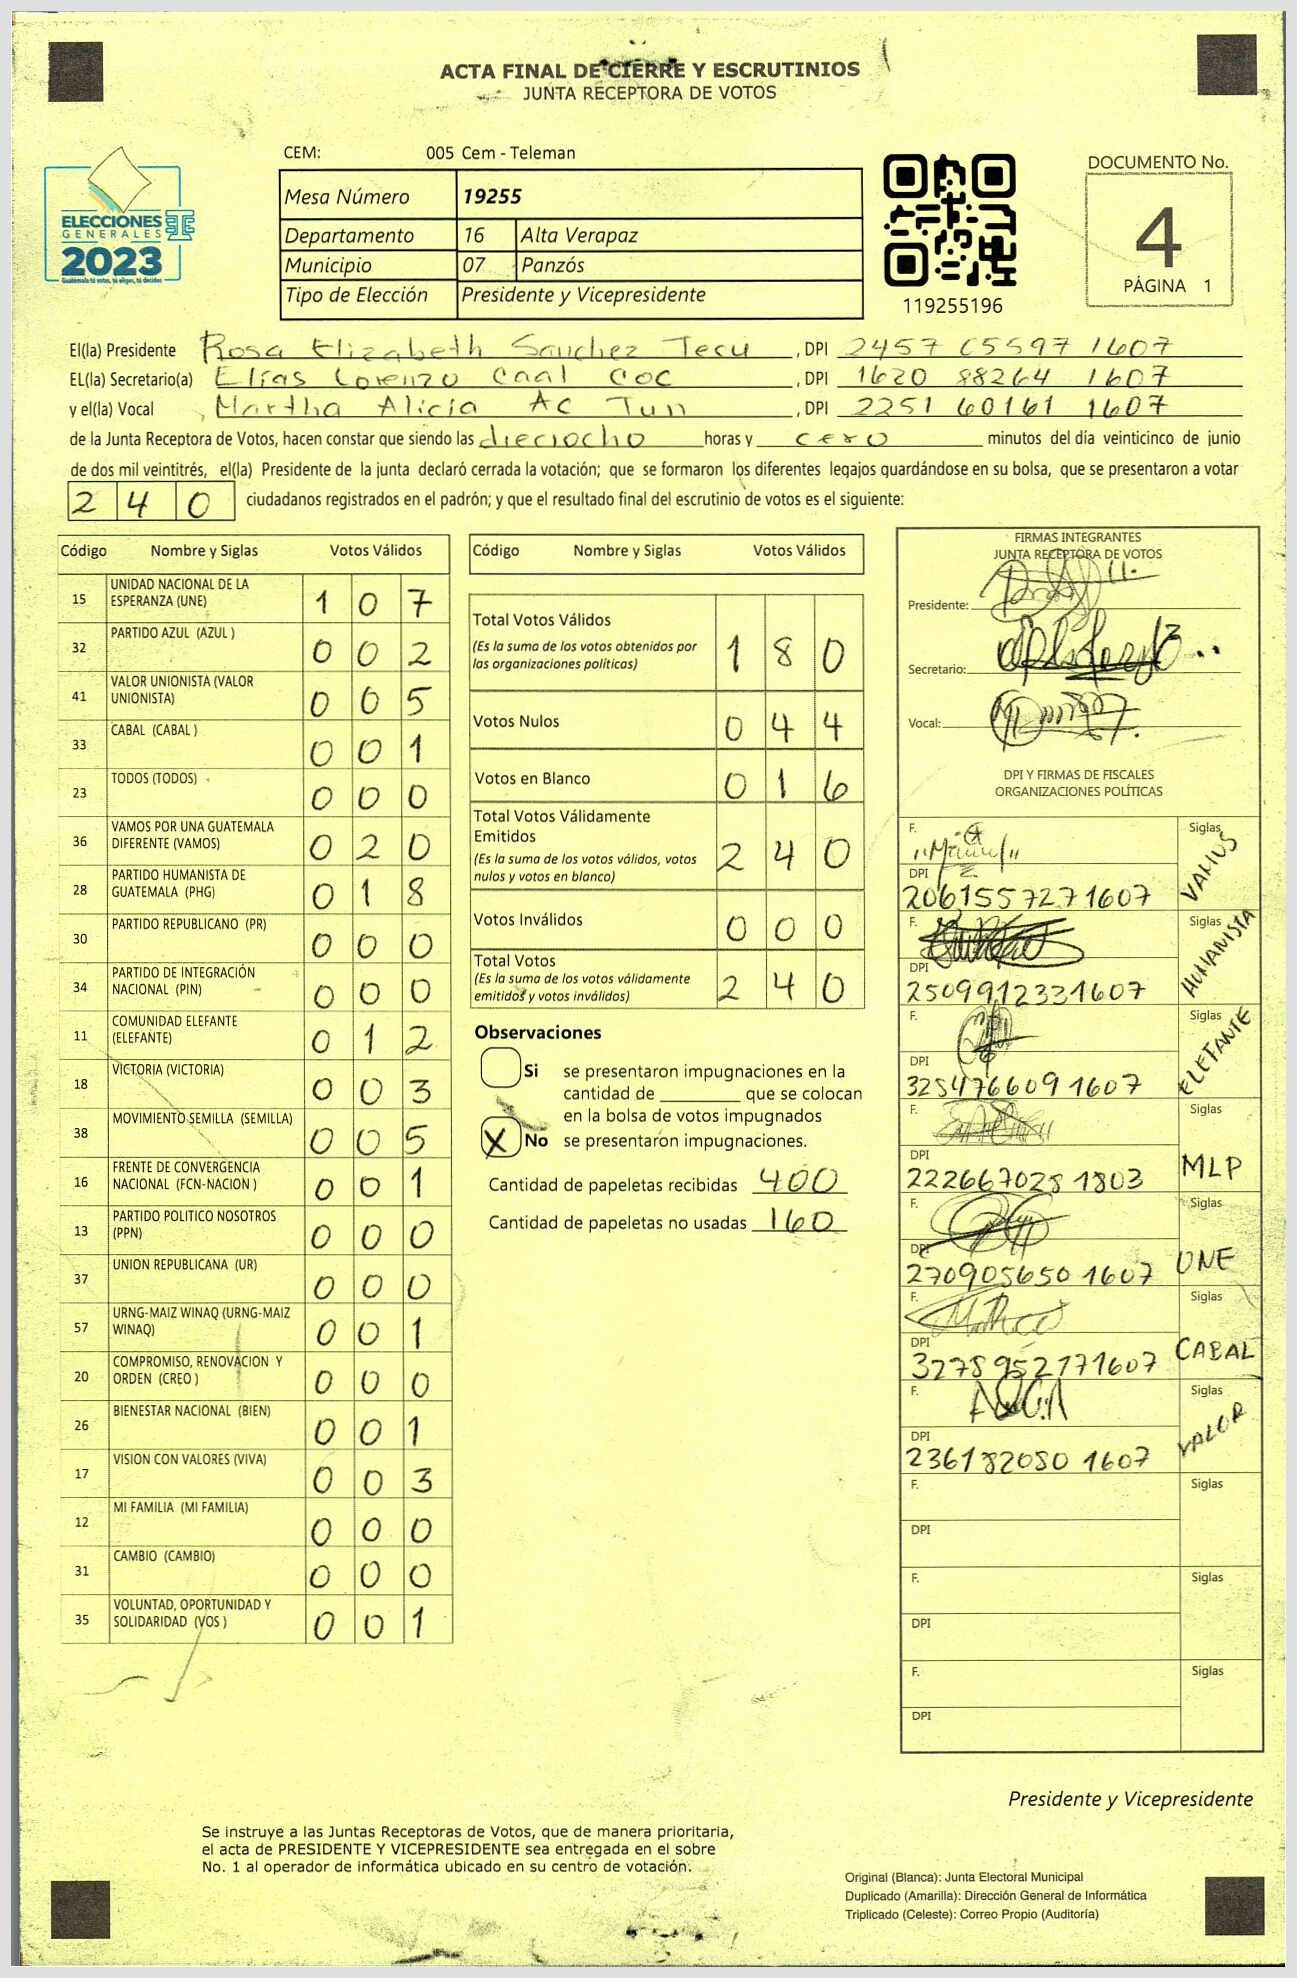 ACTA FINAL DE CIERRE Y ESCRUTINIOS
JUNTA RECEPTORA DE VOTOS
CEM: 005 Cem - Teleman
DOCUMENTO No.
4
PÁGINA 1
ELECCIONES
GENERALES
2023
Guatemala tú votas, tú eliges, tú decides
Mesa Número 19255
Departamento 16 Alta Verapaz
Municipio 07 Panzós
Tipo de Elección Presidente y Vicepresidente
119255196
El(la) Presidente Rosa Elizabeth Sanchez Tecu , DPI 2457 65597 1607
EL(la) Secretario(a) Elías Lorenzo Caal Coc , DPI 1620 88264 1607
y el(la) Vocal , Martha Alicia Ac Tun , DPI 2251 60161 1607
de la Junta Receptora de Votos, hacen constar que siendo las dieciocho horas y cero minutos del día veinticinco de junio
de dos mil veintitrés, el(la) Presidente de la junta declaró cerrada la votación; que se formaron los diferentes legajos quardándose en su bolsa, que se presentaron a votar
2 4 0 ciudadanos registrados en el padrón; y que el resultado final del escrutinio de votos es el siguiente:
Código Nombre y Siglas Votos Válidos
15 UNIDAD NACIONAL DE LA ESPERANZA (UNE) 1 0 7
32 PARTIDO AZUL (AZUL ) 0 0 2
41 VALOR UNIONISTA (VALOR UNIONISTA) 0 0 5
33 CABAL (CABAL ) 0 0 1
23 TODOS (TODOS) 0 0 0
36 VAMOS POR UNA GUATEMALA DIFERENTE (VAMOS) 0 2 0
28 PARTIDO HUMANISTA DE GUATEMALA (PHG) 0 1 8
30 PARTIDO REPUBLICANO (PR) 0 0 0
34 PARTIDO DE INTEGRACIÓN NACIONAL (PIN) 0 0 0
11 COMUNIDAD ELEFANTE (ELEFANTE) 0 1 2
18 VICTORIA (VICTORIA) 0 0 3
38 MOVIMIENTO SEMILLA (SEMILLA) 0 0 5
16 FRENTE DE CONVERGENCIA NACIONAL (FCN-NACION ) 0 0 1
13 PARTIDO POLITICO NOSOTROS (PPN) 0 0 0
37 UNION REPUBLICANA (UR) 0 0 0
57 URNG-MAIZ WINAQ (URNG-MAIZ WINAQ) 0 0 1
20 COMPROMISO, RENOVACION Y ORDEN (CREO ) 0 0 0
26 BIENESTAR NACIONAL (BIEN) 0 0 1
17 VISION CON VALORES (VIVA) 0 0 3
12 MI FAMILIA (MI FAMILIA) 0 0 0
31 CAMBIO (CAMBIO) 0 0 0
35 VOLUNTAD, OPORTUNIDAD Y SOLIDARIDAD (VOS ) 0 0 1
Código Nombre y Siglas Votos Válidos
Total Votos Válidos
(Es la suma de los votos obtenidos por
las organizaciones políticas) 1 8 0
Votos Nulos 0 4 4
Votos en Blanco 0 1 6
Total Votos Válidamente
Emitidos
(Es la suma de los votos válidos, votos
nulos y votos en blanco) 2 4 0
Votos Inválidos 0 0 0
Total Votos
(Es la suma de los votos válidamente
emitidos y votos inválidos) 2 4 0
Observaciones
Si se presentaron impugnaciones en la
cantidad de ________ que se colocan
en la bolsa de votos impugnados
X No se presentaron impugnaciones.
Cantidad de papeletas recibidas 400
Cantidad de papeletas no usadas 160
FIRMAS INTEGRANTES
JUNTA RECEPTORA DE VOTOS
Presidente:
Secretario:
Vocal:
DPI Y FIRMAS DE FISCALES
ORGANIZACIONES POLÍTICAS
F. Siglas VAMOS
DPI 2061557271607
F. Siglas HUMANISTA
DPI 2509912331607
F. Siglas ELEFANTE
DPI 3254766091607
F. Siglas MLP
DPI 2226670281803
F. Siglas UNE
DPI 2709056501607
F. Siglas CABAL
DPI 3278952171607
F. Siglas VALOR
DPI 2361820801607
F. Siglas
DPI
F. Siglas
DPI
F. Siglas
DPI
Presidente y Vicepresidente
Se instruye a las Juntas Receptoras de Votos, que de manera prioritaria,
el acta de PRESIDENTE Y VICEPRESIDENTE sea entregada en el sobre
No. 1 al operador de informática ubicado en su centro de votación.
Original (Blanca): Junta Electoral Municipal
Duplicado (Amarilla): Dirección General de Informática
Triplicado (Celeste): Correo Propio (Auditoría)